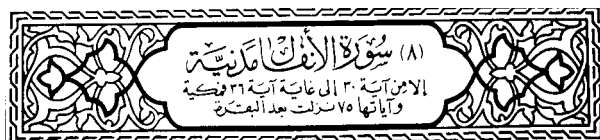 (٨) سُورَةُ الأَنفَالِ مَدَنِيَّة
إلا من آية ٣٠ إلى غاية آية ٣٦ فمكية
وآياتها ٧٥ نزلت بعد البقرة